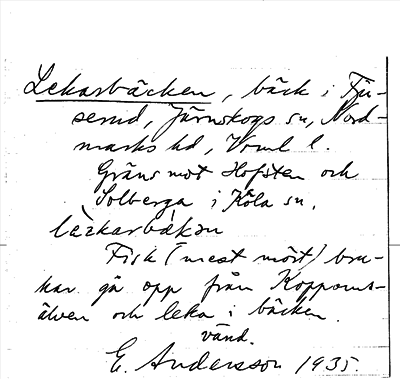 Lekarbäcken, bäck i Fju-
serud, Järnskogs sn, Nord-
marks hd, Vrml l.
Gräns mot Hofsten och
Solberga i Köla sn.
lèkarbäkən
Fisk (mest mört) bru-
kar gå opp från Koppoms-
älven och leka i bäcken.
vänd.
E. Andersson 1935.